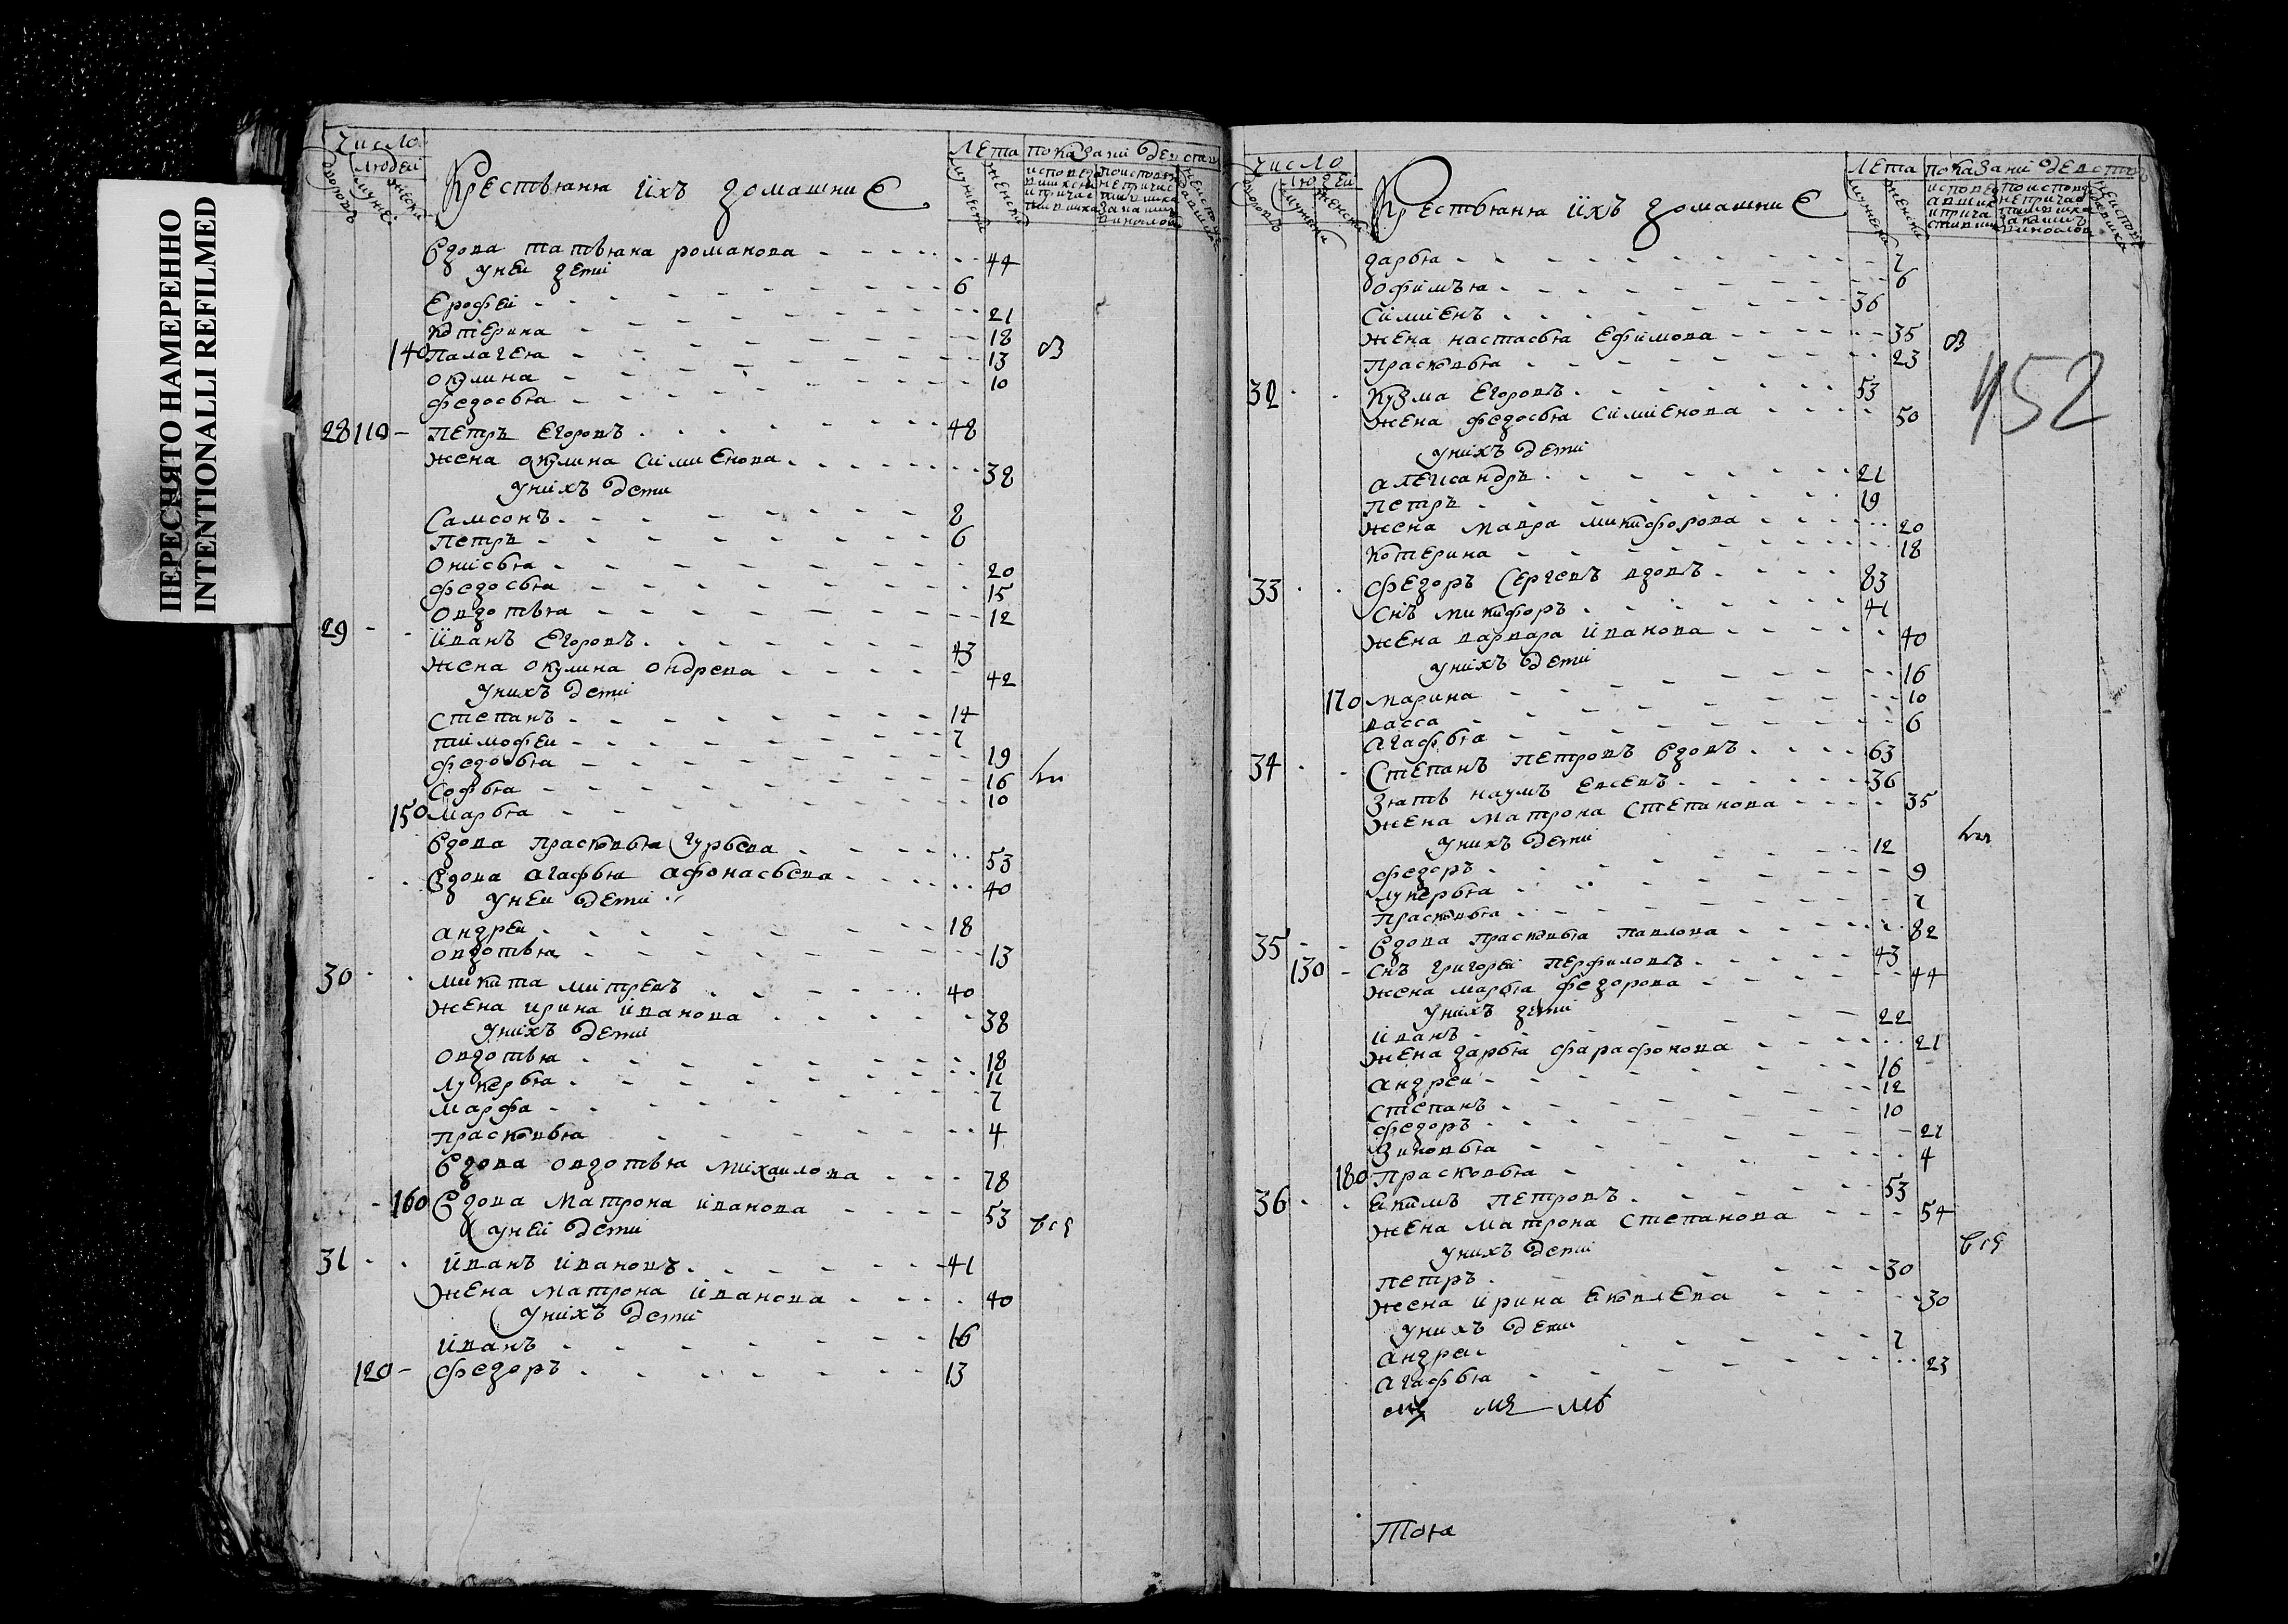 ПЕРЕСНЯТО НАМЕРЕННО
INTENTIONALLI REFILMED
число
людей
дворовъ
мужес
женска
Крестьяня ихъ домашние
лета
мужеска
женска
показание действа
вдова татьяна романова 44
у ней дети
Ерофей 6
Котерина 21
140 палагея 18
окулина 13
федосья 10
28 110 петръ Егоровъ 48
жена окулина Симиенова 38
у нихъ дети
Самсонъ 8
петръ 6
онисья 20
федосья 15
овдотья 12
29 иванъ Егоровъ 43
жена окулина ондрева 42
у нихъ дети
степанъ 14
тимофеи 7
федосья 19
Софья 16
150 марья 10
вдова прасковья гурьева 53
вдова агафья афонасьева 40
у ней дети
андреи 18
овдотья 13
30 микита митревъ 40
жена ирина иванова 38
у нихъ дети
овдотья 18
лукерья 11
марфа 7
прасковья 4
вдова овдотья михаилова 78
160 вдова матрона иванова 53
у ней дети
31 иванъ ивановъ 41
жена матрона иванова 40
у нихъ дети
иванъ 16
120 федоръ 13
число
людей
дворовъ
мужеска
женска
Крестьяня ихъ домашние
лета
мужеска
женска
показание действа
дарья 7
офимья 6
Симиенъ 36
жена настасья Ефимова 35
прасковья 23
452
32 Кузма Егоровъ 53
жена федосья Симиенова 50
у нихъ дети
александръ 21
петръ 19
жена мавра микифорова 20
котерина 18
33 федоръ Сергевъ вдовъ 83
снъ микифоръ 41
жена варвара иванова 40
у нихъ дети
170 марина 16
васса 10
агафья 6
34 Степанъ петровъ вдовъ 63
зять наумъ евсевъ 36
жена матрона степанова 35
у нихъ дети
федоръ 12
лукерья 9
прасковья 7
35 вдова прасковья павлова 82
130 снъ григореи перфиловъ 43
жена марья федорова 44
у нихъ дети
иванъ 22
жена дарья фарафонова 21
андреи 16
степанъ 12
федоръ 10
зиновья 21
180 прасковья 4
36 Екимъ петровъ 53
жена матрона степанова 54
у нихъ дети
петръ 30
жена ирина Ековлева 30
у нихъ дети
андреи 7
агафья 23
Тоя